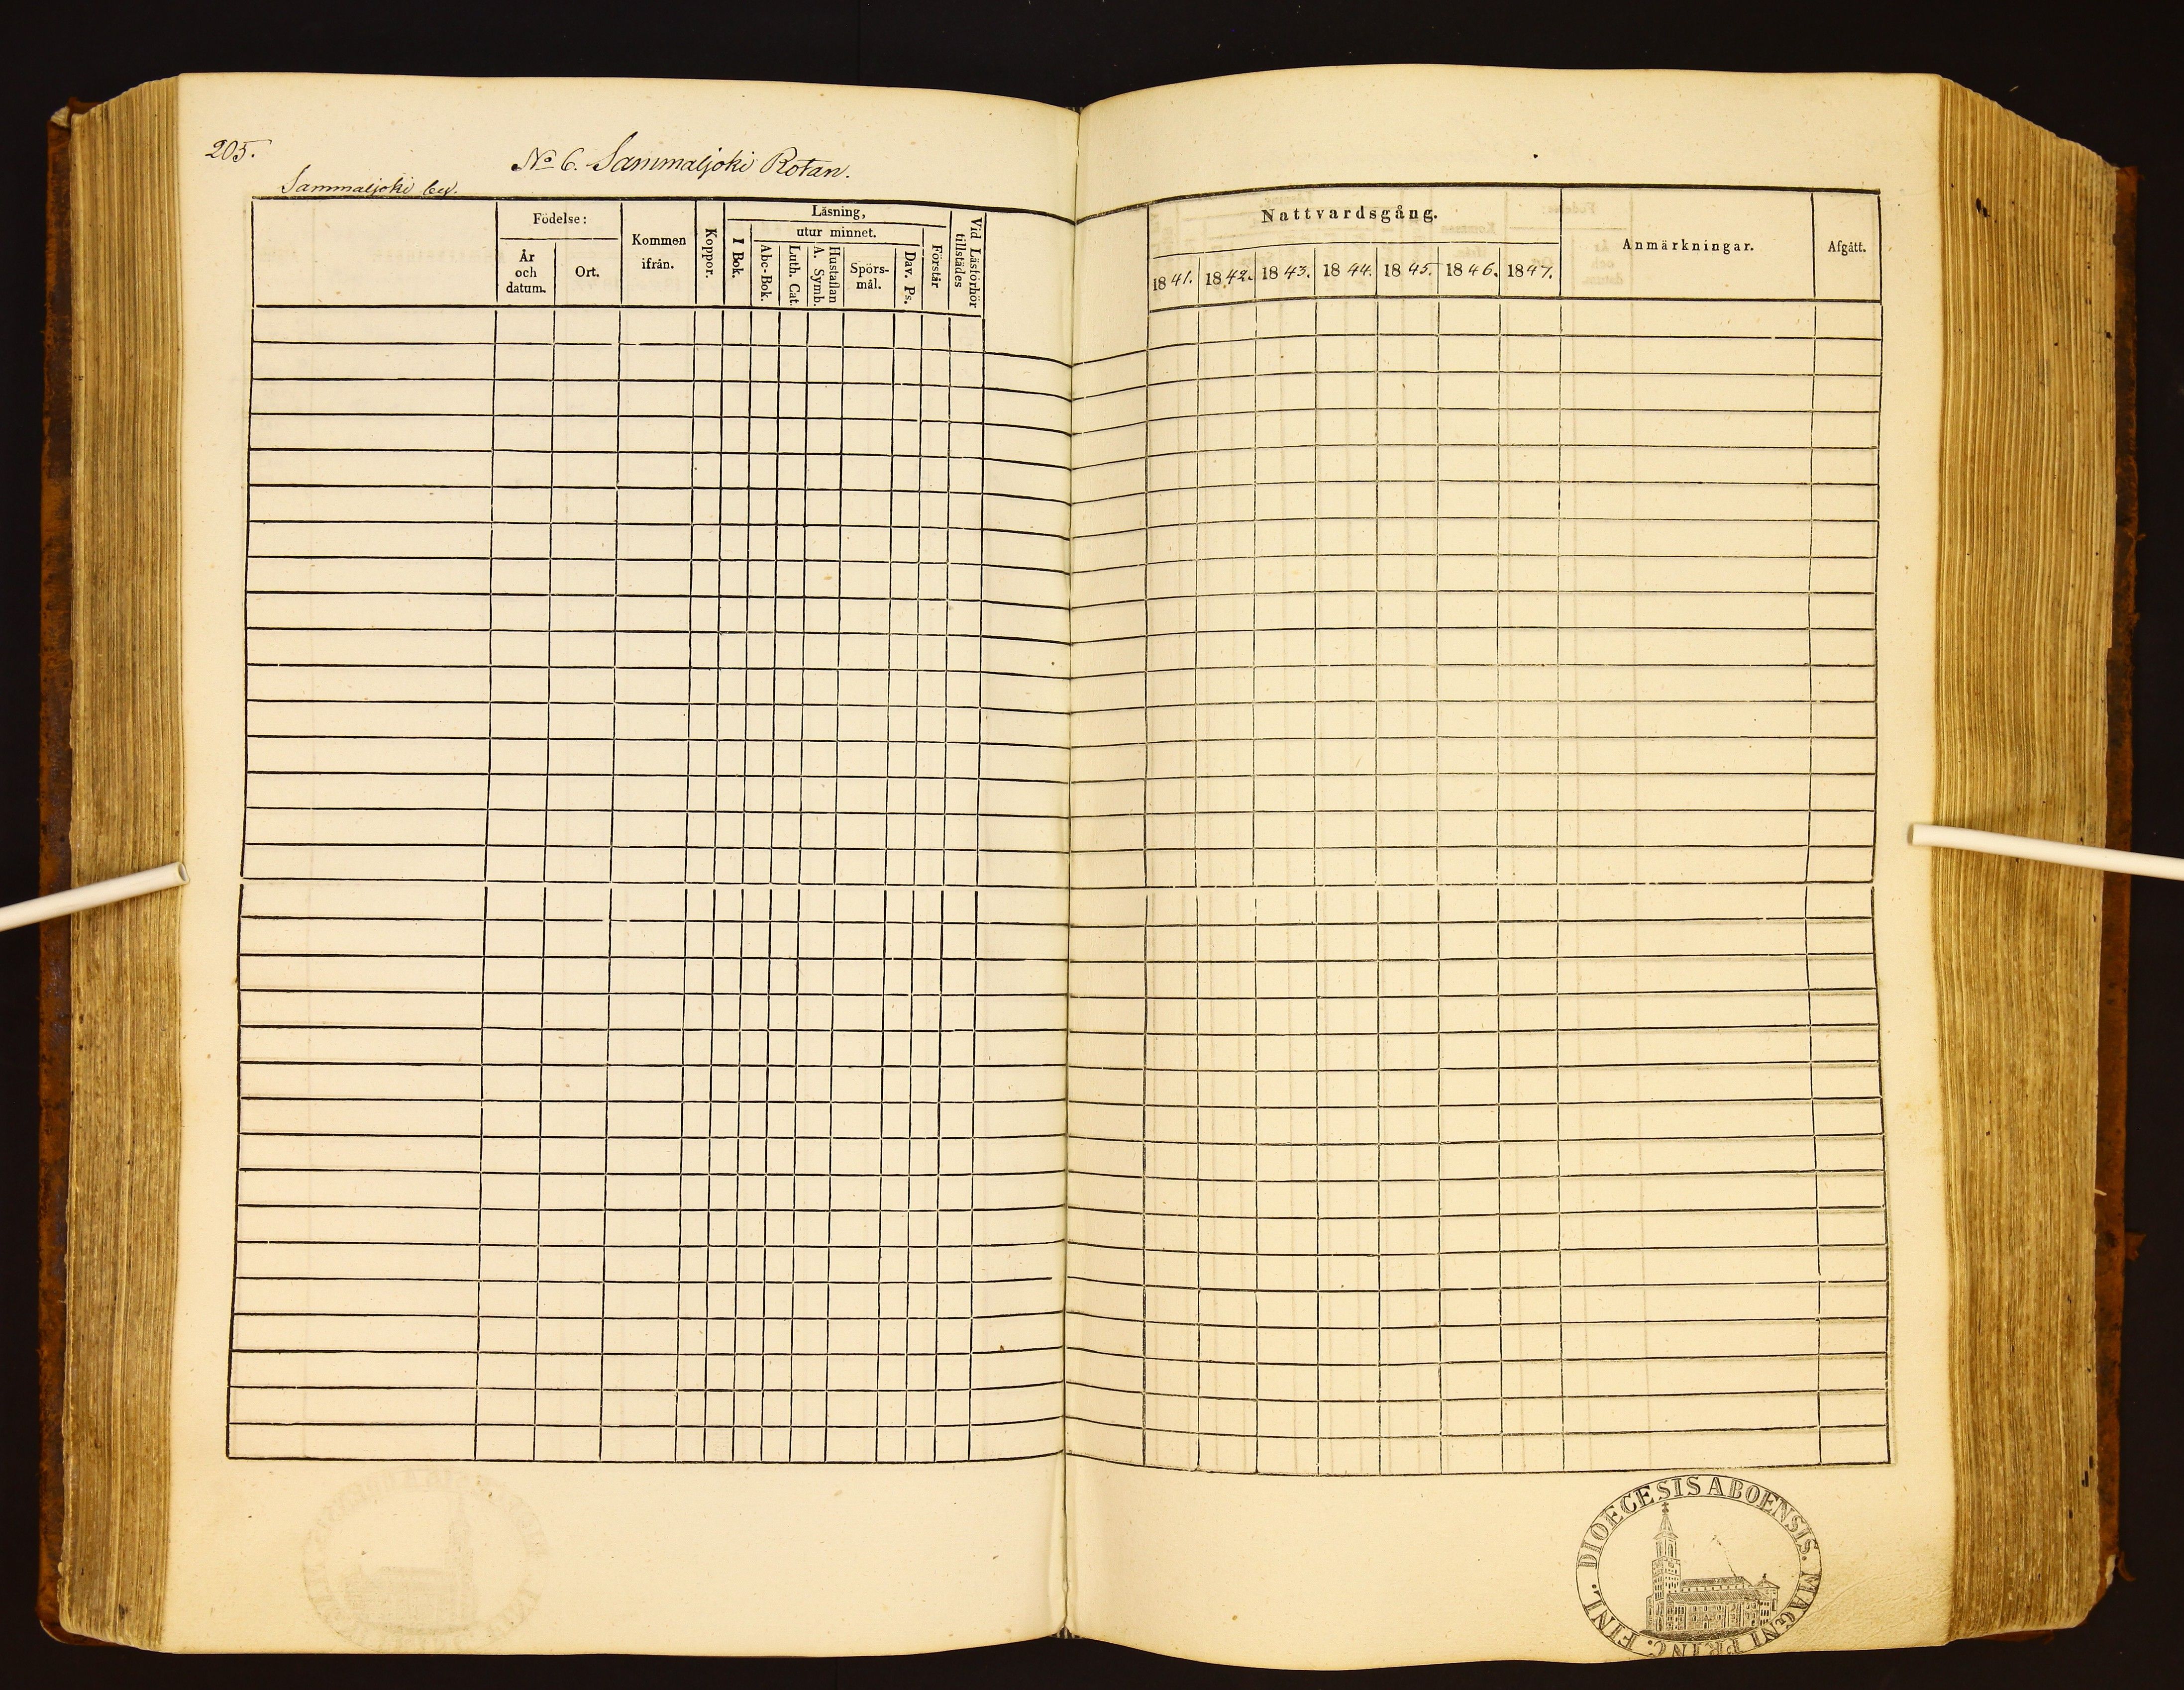 205.
No 6. Sammaljoki Rotan.
Sammaljoki by.
Födelse:
År
och
datum.
Ort.
Kommen
ifrån.
Koppor.
Läsning,
I Bok.
utur minnet.
Abc-Bok.
Luth. Cat.
Hustaflan
A. Symb.
Spörs-
mål.
Dav. Ps.
Förstår
Vid Läsförhör
tillstädes
Nattvardsgång.
1841. 1842. 1843. 1844. 1845. 1846. 1847.
Anmärkningar.
Afgått.
DIOECESIS ABOENSIS. MAGNI PRINC. FINL.